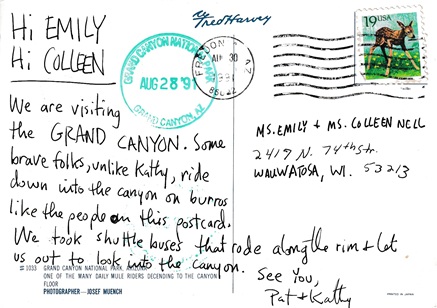 Hi EMILY
Hi COLLEEN
by Fred Harvey
GRAND CANYON NATIONAL
AUG 28 '91
GRAND CANYON, AZ
FREDONIA AZ
30
19 USA
We are visiting
the GRAND CANYON. Some
brave folks, unlike Kathy, ride
down into the canyon on burros
like the people on this postcard.
We took shuttle buses that rode along the rim & let
us out to look into the Canyon.
See You,
Pat & Kathy
MS. EMILY + MS. COLLEEN NELL
2419 N. 74th Str.
WAUWATOSA, WI. 53213
# 1033 GRAND CANYON NATIONAL PARK, ARIZONA
ONE OF THE MANY DAILY MULE RIDERS DECENDING TO THE CANYON
FLOOR
PHOTOGRAPHER — JOSEF MUENCH
PRINTED IN JAPAN